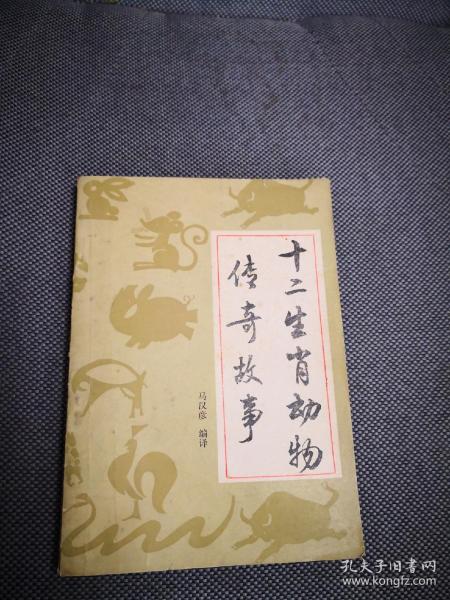 十二生肖动物
传奇故事
马汉彦 编译
孔夫子旧书网
www.kongfz.com